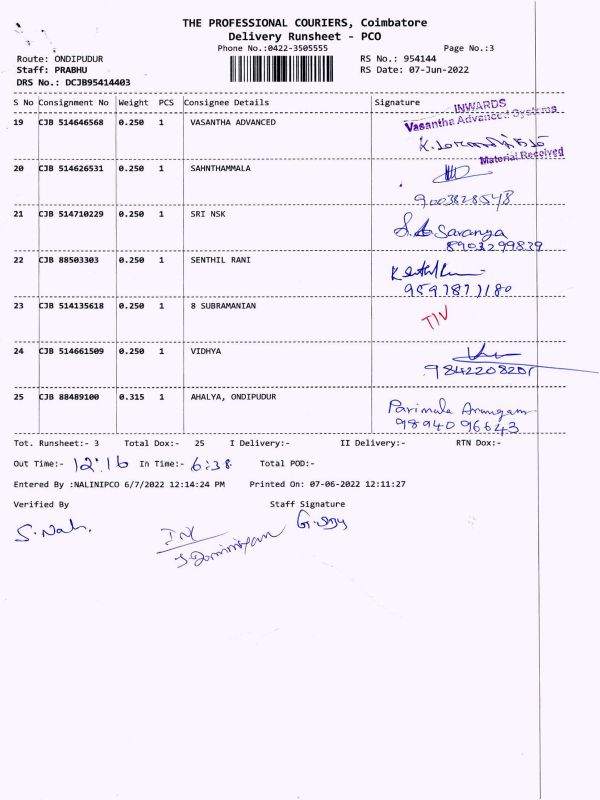 THE PROFESSIONAL COURIERS, Coimbatore
Delivery Runsheet - PCO
Phone No.:0422-3505555 Page No.:3
Route: ONDIPUDUR RS No.: 954144
Staff: PRABHU RS Date: 07-Jun-2022
DRS No.: DCJB95414403
S No Consignment No Weight PCS Consignee Details Signature
INWARDS
19 CJB 514646568 0.250 1 VASANTHA ADVANCED Vasantha Advanced Systems
Material Received
20 CJB 514626531 0.250 1 SAHNTHAMMALA
9003828548
21 CJB 514710229 0.250 1 SRI NSK Saranya
8903299839
22 CJB 88503303 0.250 1 SENTHIL RANI
9597871180
23 CJB 514135618 0.250 1 8 SUBRAMANIAN TIV
24 CJB 514661509 0.250 1 VIDHYA
9842208201
25 CJB 88489100 0.315 1 AHALYA, ONDIPUDUR Parimala Arumugam
9894096643
Tot. Runsheet:- 3 Total Dox:- 25 I Delivery:- II Delivery:- RTN Dox:-
Out Time:- 12:16 In Time:- 6:38 Total POD:-
Entered By :NALINIPCO 6/7/2022 12:14:24 PM Printed On: 07-06-2022 12:11:27
Verified By Staff Signature